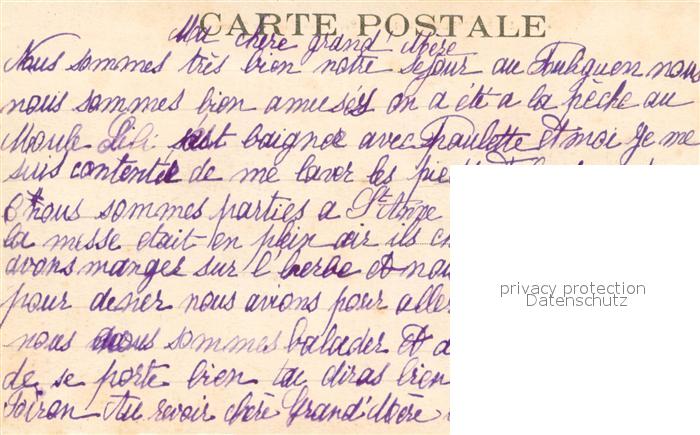 CARTE POSTALE
Ma chère grand'Mère
Nous sommes très bien notre sejour au Pouliguen nous
nous sommes bien amusés on a été a la pêche au
Moule Lili s'est baigner avec Paulette et moi je me
suis contentée de me laver les
nous sommes parties a Ste Anne
la messe etait en plein air ils
avons manger sur l'herbe et
pour diner nous avions pour aller
nous nous sommes balader et a
de se porte bien tu diras bien
Au revoir chère Grand'Mère
privacy protection
Datenschutz